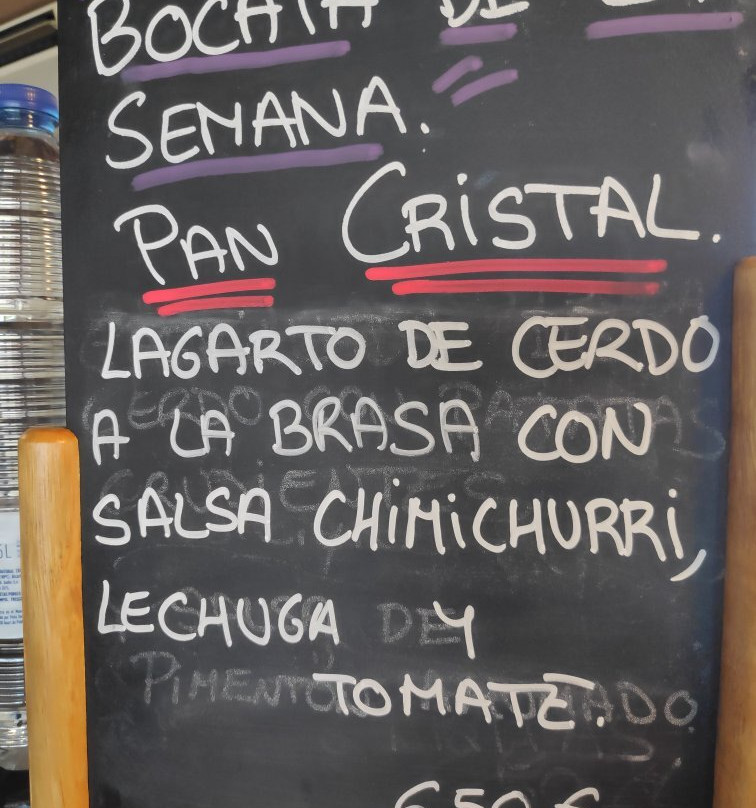 BOCATA DE LA
SEMANA.
PAN CRISTAL.
LAGARTO DE CERDO
A LA BRASA CON
SALSA CHIMICHURRI,
LECHUGA Y
TOMATE.
6,50 €